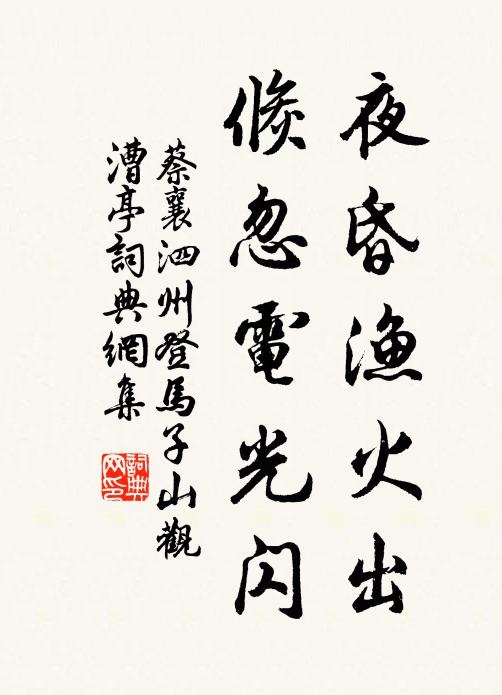 夜昏漁火出
倐忽電光閃
蔡襄泗州登馬子山觀
漕亭詞典網集
詞典
网印